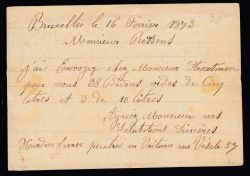 Bruxelles le 16 Février 1873
Monsieur
J'ai Envoyez chez Monsieur Straatman
pour vous 38 Bidons vides de Cinq
litres et 3 de 10 litres
Agréez Monsieur nos
Salutations Sincères
frères peintres en Voiture rue Vésale 37